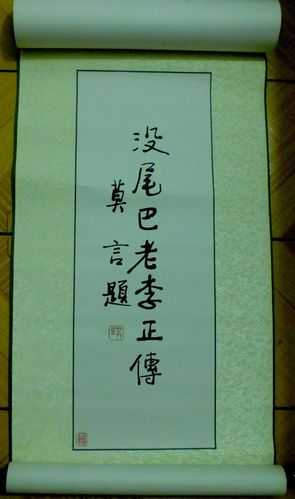 没尾巴老李正傳
莫言題